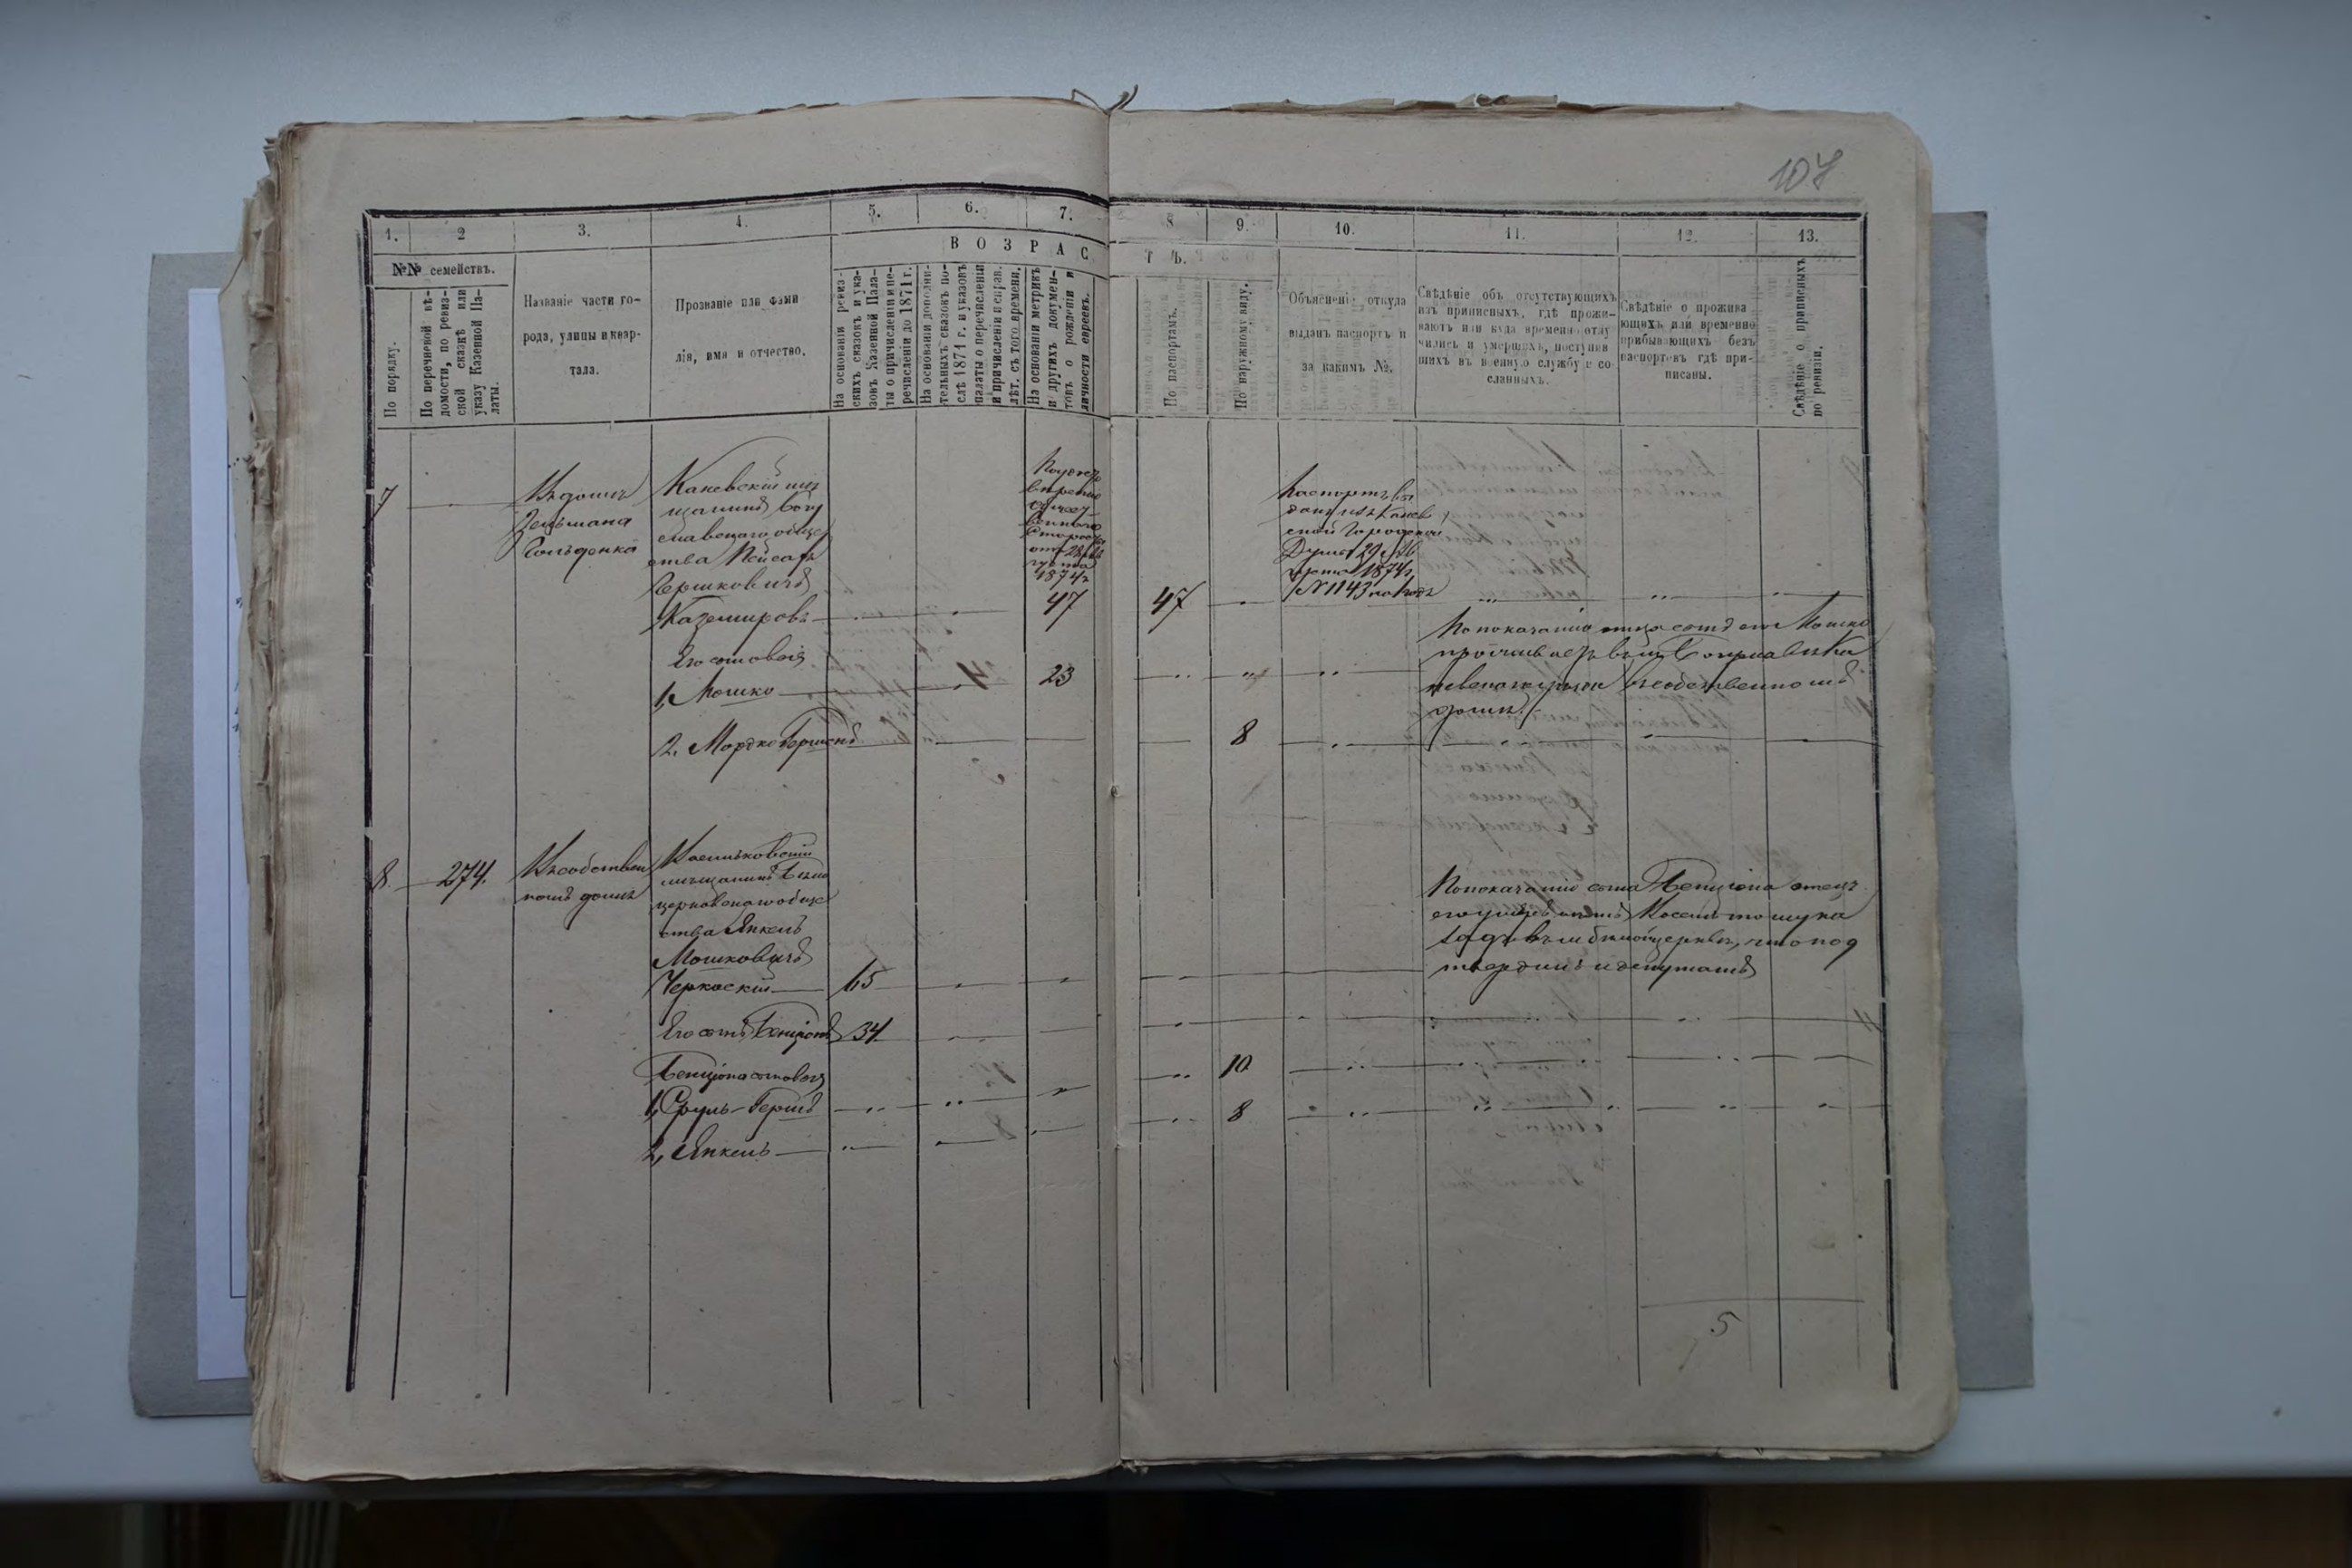 107
1. 2 3. 4. 5. 6. 7. 8 9. 10. 11. 12. 13.
ВОЗРАСТЪ.
№№ семействъ.
По порядку.
По перечневой вѣ-
домости, по ревиз-
ской сказкѣ или
указу Казенной Па-
латы.
Названіе части го-
рода, улицы и квар-
тала.
Прозваніе или фами
лія, имя и отчество.
На основаніи ревиз-
скихъ сказокъ и ука-
зовъ Казенной Пала-
ты о причисленіи и пе-
речисленіи до 1871 г.
На основаніи дополни-
тельныхъ сказокъ по-
слѣ 1871 г. и указовъ
палаты о перечисленіи
и причисленіи и справ.
лѣт. съ того времени.
На основаніи метрикъ
и другихъ докумен-
товъ о рожденіи и
личности евреевъ.
По паспортамъ.
По наружному виду.
Объясненіе откуда
выданъ паспортъ и
за какимъ №.
Свѣдѣніе объ отсутствующихъ
изъ приписныхъ, гдѣ прожи-
ваютъ или куда временно отлу
чились и умершихъ, поступив
шихъ въ военную службу и со-
сланныхъ.
Свѣдѣніе о прожива
ющихъ или временно
прибывающихъ безъ
паспортовъ гдѣ при-
писаны.
Свѣдѣніе о приписныхъ
по ревизіи.
7
Въ домѣ
Зельмана
Каневскій мѣ
щанинъ Богу
славскаго обще
ства
Гершковичъ
Казимировъ
от 28
1874 г.
47
47
Паспортъ вы
данъ изъ Канев
ской Городской
Думы 29 Ав
густа 1874 г.
№ 1143 на годъ
Его сыновья
1, Мошко 4 23
По показанію отца сынъ его Мошко
проживаетъ въ м. Богуславѣ Ка
невскаго уѣзда въ собственномъ
домѣ.
2. Мордко Гершонъ 8
8. 274.
Въ собствен
номъ домѣ
Васильковскій
мѣщанинъ Бѣло
церковскаго обще
ства Янкель
Мошковичъ
Черкаскій 65
По показанію сына Бенціона отецъ
его умеръ
въ м. Бѣлой церкви, что под
твердилъ и депутатъ
Его сынъ Бенціонъ 34
Бенціона сыновья
1, Сруль-Гершъ 10
2, Янкель 8
5